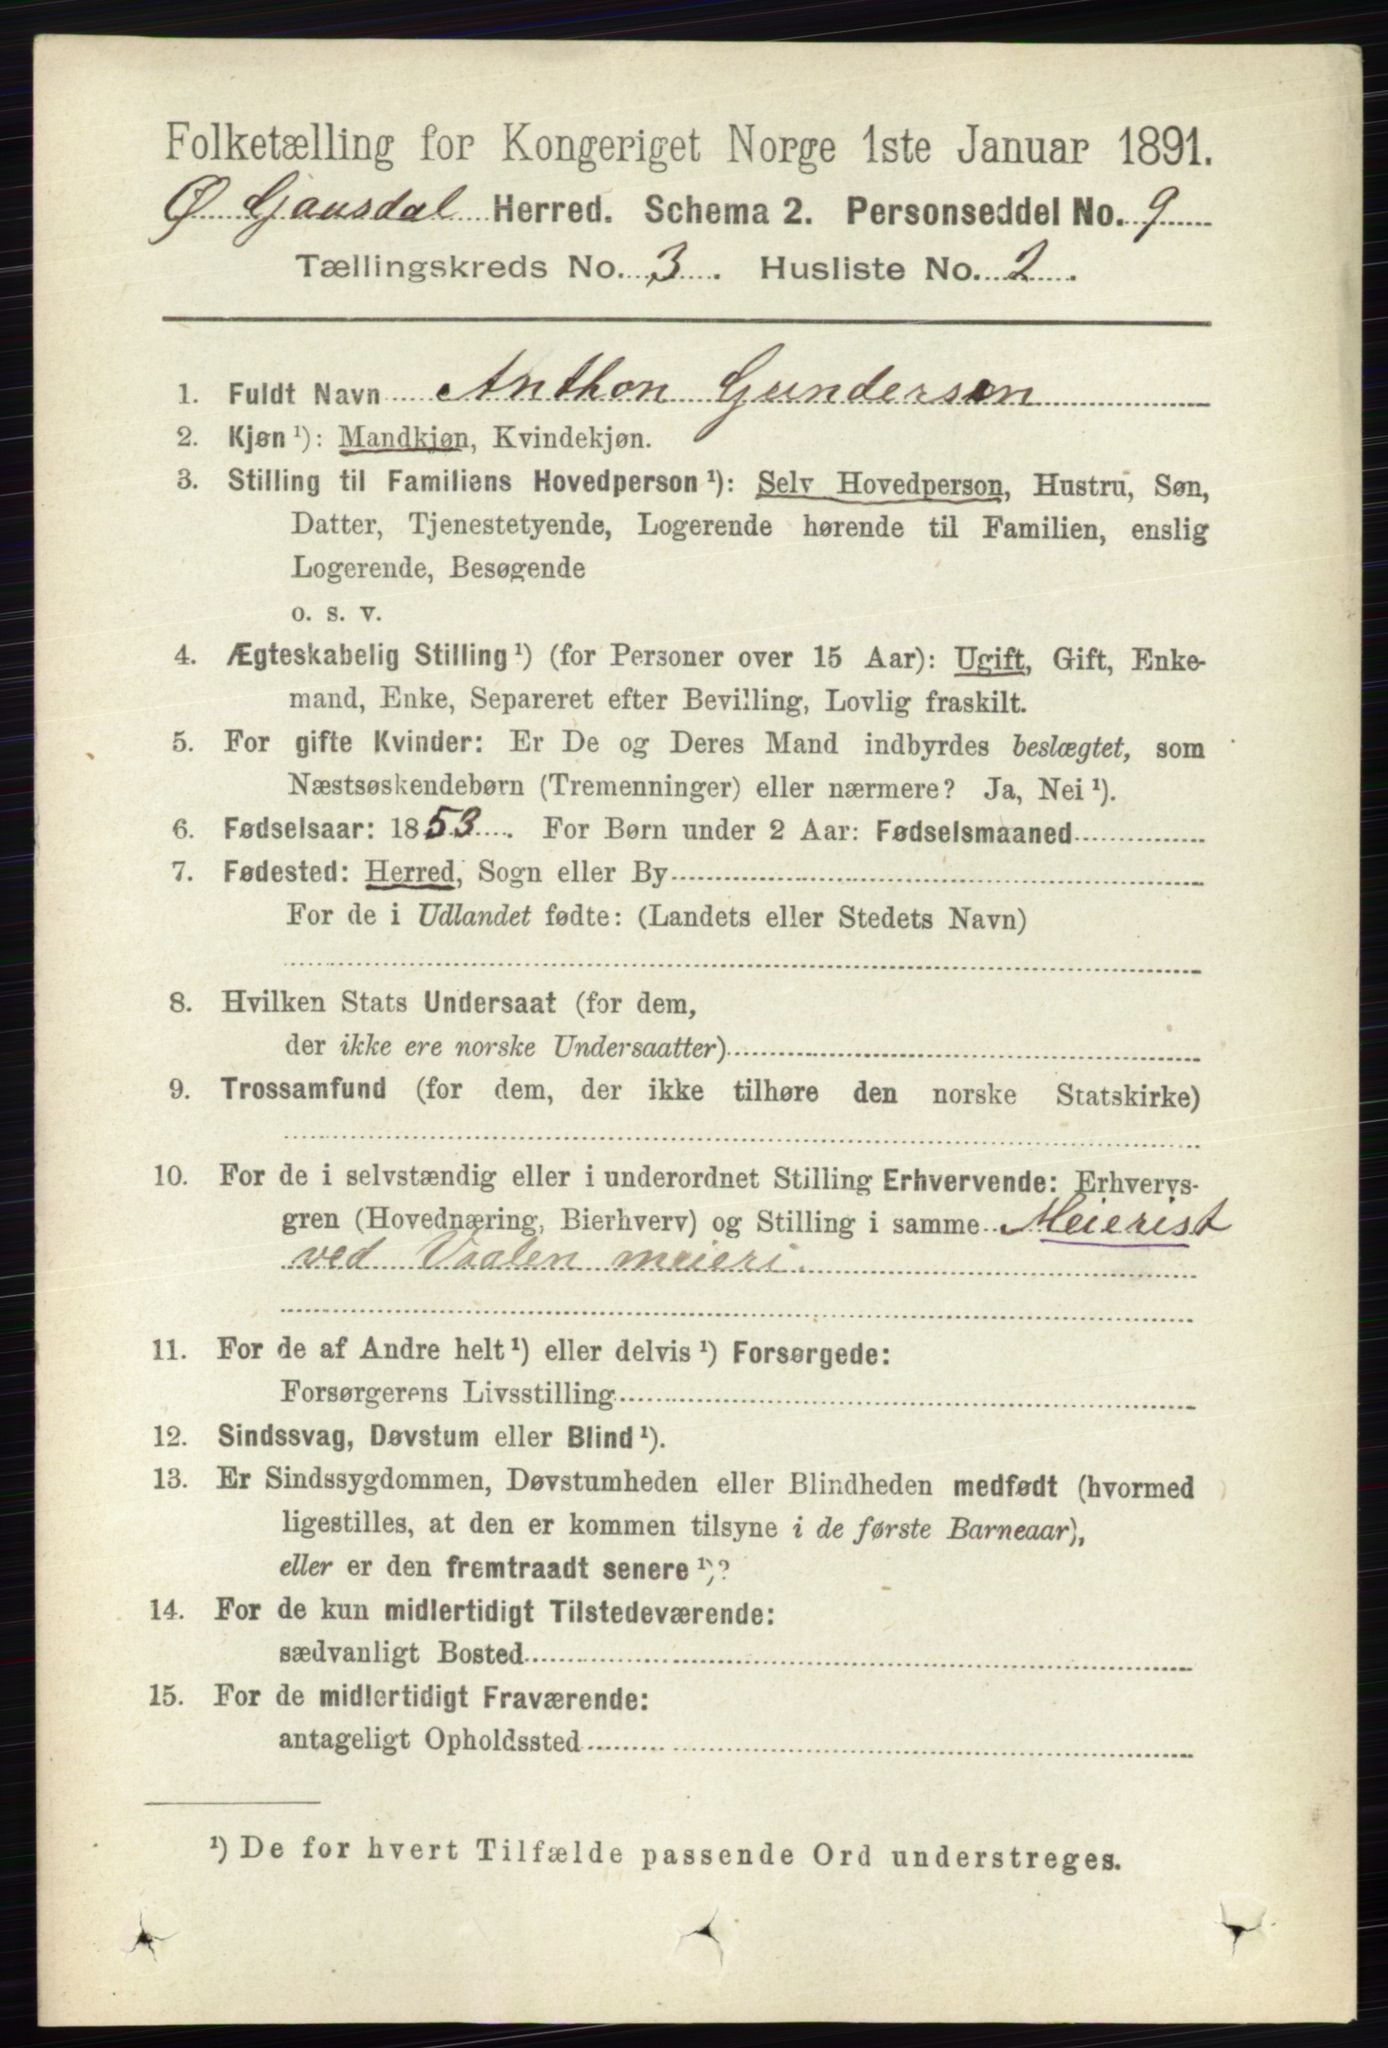 Folketælling for Kongeriget Norge 1ste Januar 1891.
Ø. Gausdal Herred. Schema 2. Personseddel No. 9
Tællingskreds No. 3. Husliste No. 2.
1. Fuldt Navn Anthon Gundersen
2. Kjøn ¹): Mandkjøn, Kvindekjøn.
3. Stilling til Familiens Hovedperson ¹): Selv Hovedperson, Hustru, Søn,
Datter, Tjenestetyende, Logerende hørende til Familien, enslig
Logerende, Besøgende
o. s. v.
4. Ægteskabelig Stilling ¹) (for Personer over 15 Aar): Ugift, Gift, Enke-
mand, Enke, Separeret efter Bevilling, Lovlig fraskilt.
5. For gifte Kvinder: Er De og Deres Mand indbyrdes beslægtet, som
Næstsøskendebørn (Tremenninger) eller nærmere? Ja, Nei ¹).
6. Fødselsaar: 1853. For Børn under 2 Aar: Fødselsmaaned
7. Fødested: Herred, Sogn eller By
For de i Udlandet fødte: (Landets eller Stedets Navn)
8. Hvilken Stats Undersaat (for dem,
der ikke ere norske Undersaatter)
9. Trossamfund (for dem, der ikke tilhøre den norske Statskirke)
10. For de i selvstændig eller i underordnet Stilling Erhvervende: Erhvervs-
gren (Hovednæring, Bierhverv) og Stilling i samme Meierist
ved Vaalen meieri.
11. For de af Andre helt ¹) eller delvis ¹) Forsørgede:
Forsørgerens Livsstilling
12. Sindssvag, Døvstum eller Blind ¹).
13. Er Sindssygdommen, Døvstumheden eller Blindheden medfødt (hvormed
ligestilles, at den er kommen tilsyne i de første Barneaar),
eller er den fremtraadt senere ¹)?
14. For de kun midlertidigt Tilstedeværende:
sædvanligt Bosted
15. For de midlertidigt Fraværende:
antageligt Opholdssted
¹) De for hvert Tilfælde passende Ord understreges.